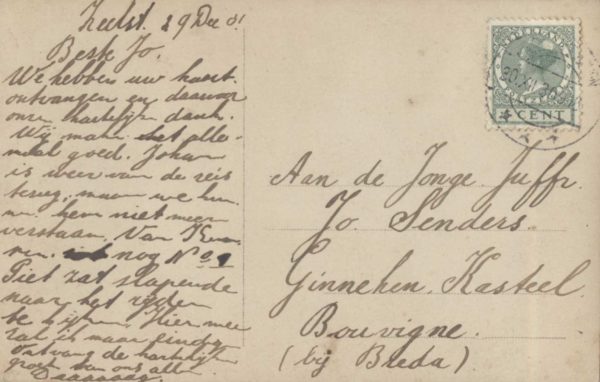 Zeelst. 29 Dec 31
Beste Jo.
We hebben uw kaart
ontvangen en daarvoor
onze hartelijk dank.
Wij maken het alle-
maal goed. Johan
is weer van de reis
terug, maar we kun
nen hem niet meer
verstaan. Van
nog No 1
Piet zat slapende
naar het rijden
te kijken. Hier mee
zal ik maar eindig
Ontvang de hartelijke
groet van ons allen
Daaaaag.
NEDERLAND
4 CENT
Aan de Jonge Juffr.
Jo. Senders.
Ginneken. Kasteel
Bouvigne.
(bij Breda)